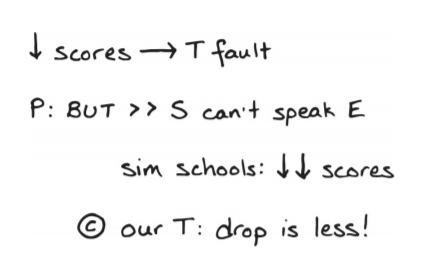 ↓ scores → T fault
P: BUT >> S can't speak E
sim schools: ↓↓ scores
© our T: drop is less!